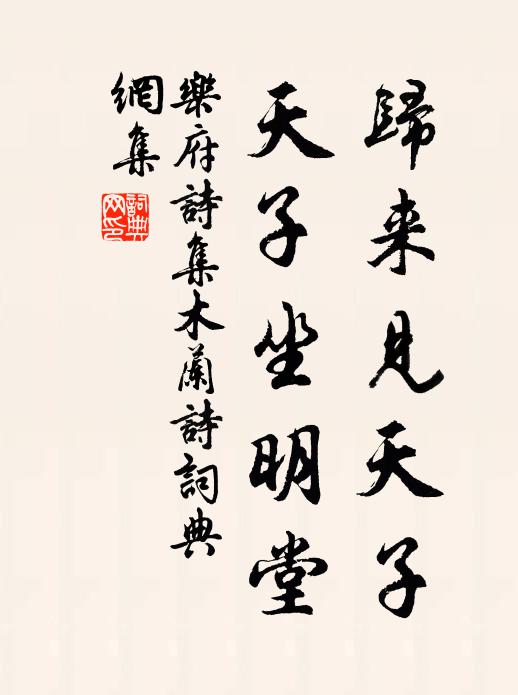 歸来見天子
天子坐明堂
樂府詩集木蘭詩詞典
網集
詞典
网印